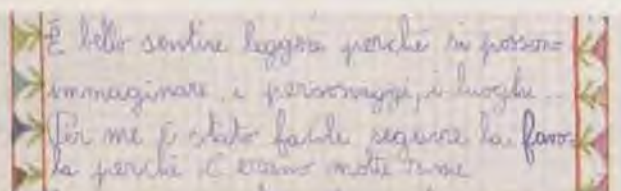 È bello sentire leggere perché si possono
immaginare i personaggi, i luoghi...
Per me è stato facile seguire la favo
la perché c'erano molte rime